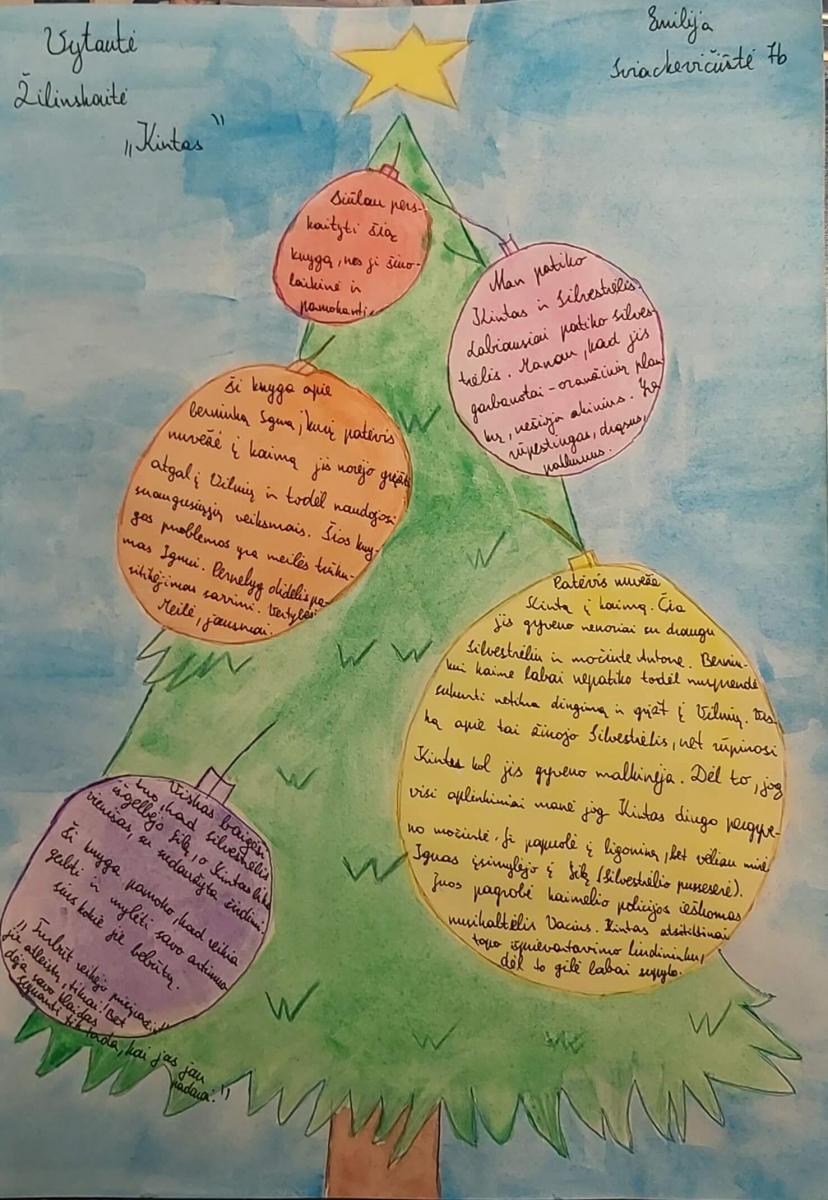 Vytautė
Žilinskaitė
„Kintas"
Emilija
Sviackevičiūtė 7b
Siūlau pers-
kaityti šią
knygą, nes ji šiuo-
laikinė ir
pamokanti.
Man patiko
Kintas ir Silvestrėlis.
Labiausiai patiko Silves-
trėlis. Manau, kad jis
garbanotai - oranžinių plau
kų, nešioja akinius. Yra
rūpestingas, drąsus,
patikimas.
Ši knyga apie
berniuką Igną, kurį patėvis
nuvežė į kaimą jis norėjo grįžti
atgal į Vilnių ir todėl naudojosi
suaugusiųjų veiksmais. Šios kny-
gos problemos yra meilės trūku-
mas Ignui. Pernelyg didelis pa-
sitikėjimas savimi. Vertybės:
Meilė, jausmai.
Patėvis nuvežė
Kintą į kaimą. Čia
jis gyveno nenoriai su draugu
Silvestrėliu ir močiute Antone. Berniu-
kui kaime labai nepatiko todėl nusprendė
sukurti netikrą dingimą ir grįžt į Vilnių. Vis-
ką apie tai žinojo Silvestrėlis, net rūpinosi
Kintas kol jis gyveno malkinėja. Dėl to, jog
visi aplinkiniai manė jog Kintas dingo pergyve-
no močiutė. Ji papuolė į ligoninę, bet vėliau mirė
Ignas įsimylėjo į Gilę (Silvestrėlio pusseserė).
Juos pagrobė kaimelio policijos ieškomas
nusikaltėlis Vacius. Kintas atsitiktinai
tapo išnievartavimo liudininku,
dėl to gilė labai supyko.
Viskas baigėsi
tuo, kad Silvestrėlis
išgelbėjo Gilę, o Kintas liko
vienišas, su sudaužyta širdimi.
Ši knyga pamoko, kad reikia
gerbti ir mylėti savo artimuo
sius kokie jie bebūtų.
„Turbūt reikėjo
jie atleistų, tikrai! Bet
dėja savo klaidas
supranti tik tada, kai jas jau
padarai!"